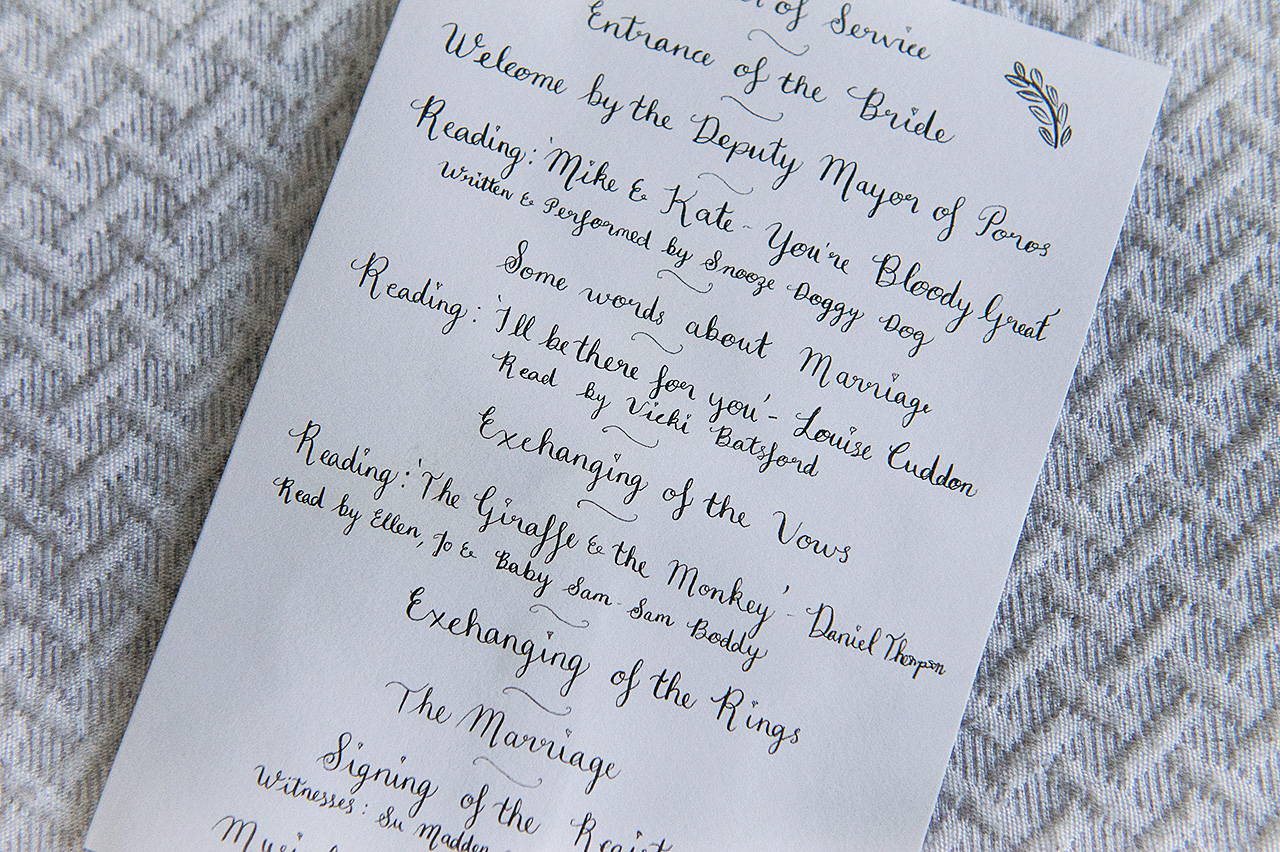 of Service
Entrance of the Bride
Welcome by the Deputy Mayor of Poros
Reading: 'Mike & Kate - You're Bloody Great'
Written & Performed by Snooze Doggy Dog
Some words about Marriage
Reading: 'I'll be there for you' - Louise Cuddon
Read by Vicki Batsford
Exchanging of the Vows
Reading: 'The Giraffe & the Monkey' - Daniel Thompson
Read by Ellen, Jo & Baby Sam-Sam Boddy
Exchanging of the Rings
The Marriage
Signing of the
Witnesses: Su Madden